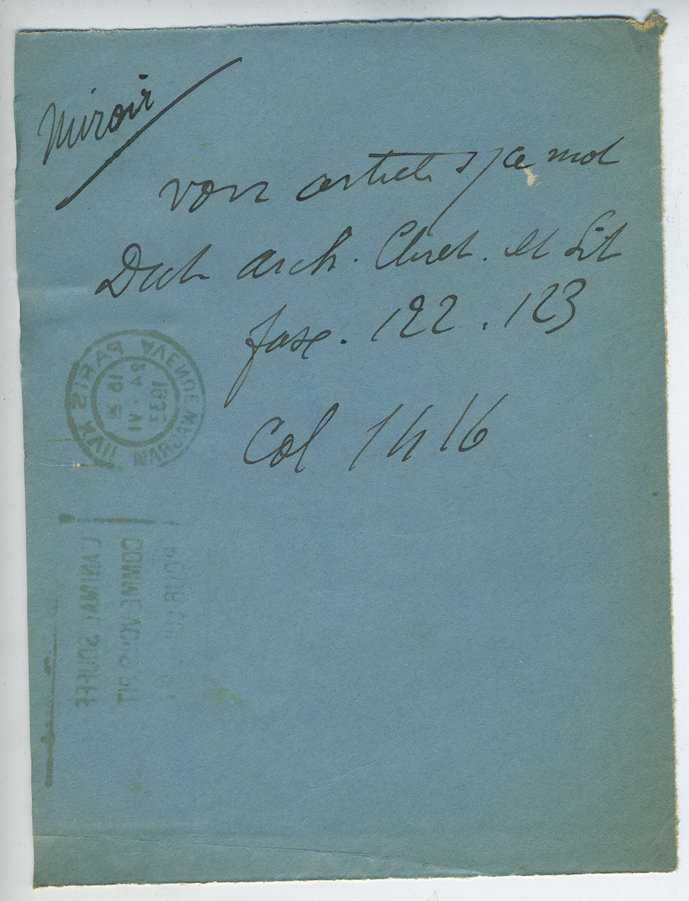 Miroir
voir article s/ce mot
Dict. arch. Chret. et Lit
fasc. 122. 123
Col 1416
PARIS XVII
AVENUE WAGRAM
18 H
24 - VI
1933
COMME VOUS
L'ANIMAL SOUFFRE